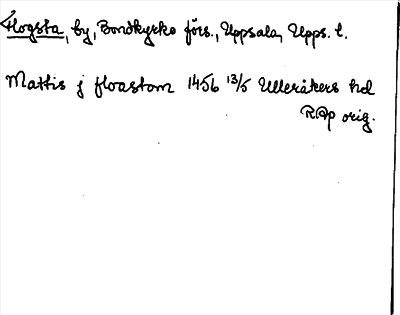 Flogsta, by, Bondkyrko förs., Uppsala, Upps. l.
Mattis j floastom 1456 13/5 Ulleråkers hd
RAp orig.